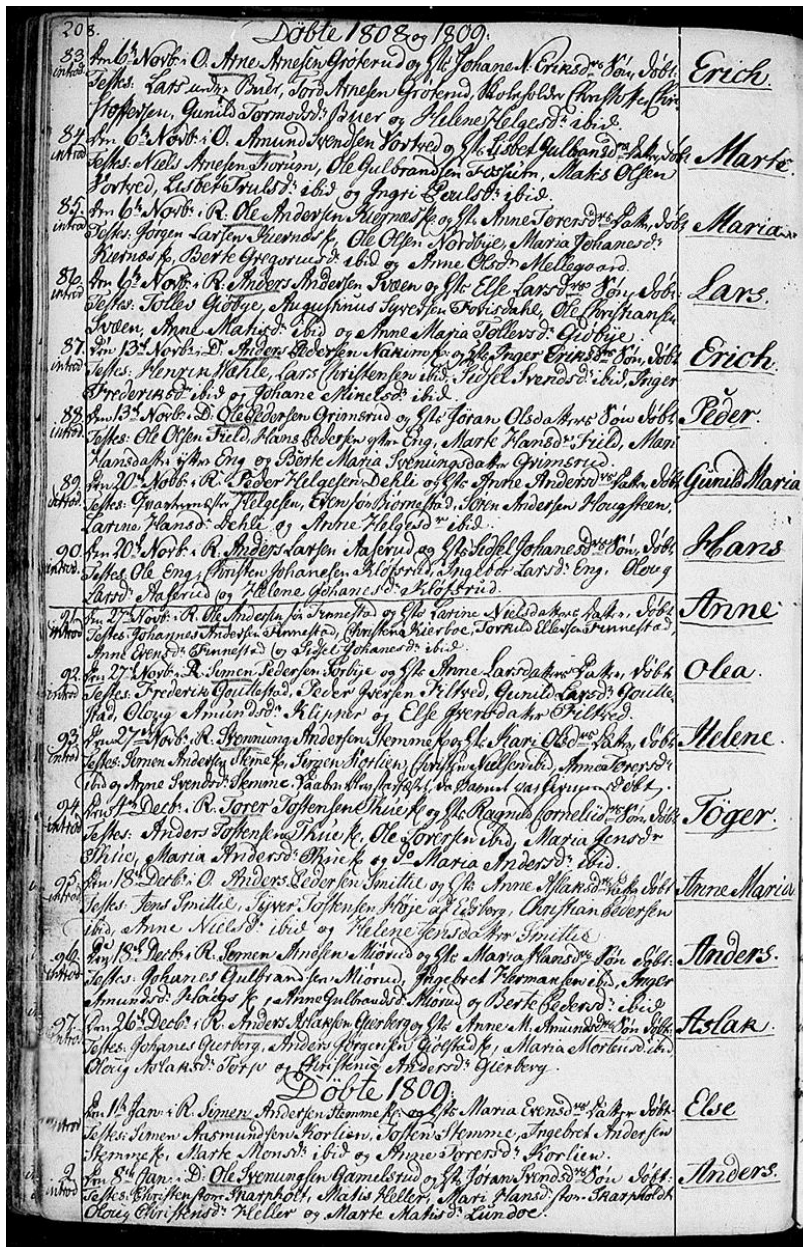 208.
Döbte 1808 og 1809.
83. Den 6t Novb: i O. Arne Arnesen Gröterud og Hst: Johane N. Eriksdrs Sön, döbt: Erich.
introd. Testes: Lars nedre Buer, Tord Arnesen Gröterud, Skoleholder Christoffer Chri-
stoffersen, Gunild Tormodsdr Buer og Helene Helgesdr ibid.
84. Den 6t Novb: i O. Amund Svendsen Vortved og Hst: Lisbet Gulbransdrs Datter, döbt Marte.
introd Testes: Niels Arnesen Ole Gulbrandsen Fossum, Matis Olsen
Vortved, Lisbet Trulsdr ibid og Ingri Poulsdr ibid.
85. Den 6t Novb: i R. Ole Andersen Kiernæs og Hst: Anne Torersdrs Datter, döbt Maria
introd Testes: Jörgen Larsen Kiernæs Ole Olsen Nordbye, Maria Johanesdr
Kiernæs Berte Gregoriusdr ibid og Anne Olsdr Mellegaard.
86. Den 6t Novb: i R. Anders Andersen Svæen og Hst: Else Larsdrs Sön, döbt: Lars.
introd Testes: Tollev Giöbye, Augustinus Syversen Ole Christiansen
Svæen, Anne Matisdr ibid og Anne Maria Tollevsdr Giöbye.
87. Den 13d Novb: i D: Anders Pedersen og Hst: Inger Eriksdrs Sön, döbt Erich.
introd Testes: Henrik Wæhle, Lars Christensen ibid, Sidsel Svendsdr ibid, Inger
Frederiksdr ibid og Johane Mikelsdr ibid.
88. Den 13d Novb: i D. Ole Pedersen Grimsrud og Hst: Jöran Olsdatters Sön döbt Peder.
introd. Testes: Ole Olsen Field, Hans Pedersen ytre Eng, Marte Hansdr Field, Mari
Hansdatter ytre Eng og Berte Maria Svenungsdatter Grimsrud.
89. Den 20d Novb: i R: Peder Helgesen Dehli og Hst: Anne Andersdrs Datter, döbt Gunild Maria
Testes: Qvarteermester Helgesen, Even sön Biörnestad, Sören Andersen Hougsteen,
Larine Hansdr Dehli og Anne Helgesdr ibid.
90. Den 20d Novb: i R. Anders Larsen Aaserud og Hst: Sidsel Johanesdrs Sön, döbt Hans
introd. Testes Ole Eng, Christen Johanesen Klöfsrud, Ingebor Larsdr Eng, Oloug
Larsdr Aaserud og Helene Johanesdr Klöfsrud.
91. Den 27d Novb: i R. Ole Andersen Finnestad og Hst: Larine Nielsdatters Datter, döbt Anne
introd Testes: Johannes Andersen Finnestad, Christena Kierboe, Torkild Ellersen Finnestad,
Anne Evensdr Finnestad og Sidsel Johanesdr ibid.
92. Den 27d Novb: i R. Simen Pedersen Sörbye og Hst: Anne Larsdatters Datter, döbt Olea.
introd Testes: Frederik Goullestad, Peder Iversen Filtved, Gunild Larsdr Goulle-
stad, Oloug Amundsdr Klipper og Else Iversdatter Filtved.
93. Den 27d Novb: i R. Svennung Andersen Stemme og Hst: Kari Olsdrs Datter, döbt Helene.
introd Testes: Simen Andersen Stemme Jörgen Korlien, Christen Nielsen ibid, Anne Torersdr
ibid og Anne Svendsdr Stemme. Daaben stadfæstet, da barnet var döbt.
94. Den 4d Decb: i R. Torer Tostensen Thue og Hst: Ragnild Corneliidrs Sön, döbt Töger.
introd Testes: Anders Tostensen Thue Ole Torersen ibid, Maria Jensdr
Thue, Maria Andersdr Thue og Maria Andersdr ibid.
95. Den 18d Decb: i O. Anders Pedersen Smittil og Hst: Anne Aslaksdrs Datter döbt Anne Maria
introd Testes: Jens Smittil, Syver Tostensen Höje af Edsberg, Christian Pedersen
ibid, Anne Nielsdr ibid og Helene Jensdatter Smittil.
96. Den 18d Decb: i R. Simen Anesen Miörud og Hst: Maria Hansdrs Sön döbt: Anders.
introd Testes: Johanes Gulbrandsen Miörud, Ingebret Hermansen ibid, Inger
Amundsdr Anne Gulbrandsdr Miörud og Berte Pedersdr ibid.
97. Den 26d Decb: i R. Anders Aslaksen Gierberg og Hst: Anne M. Amundsdrs Sön döbt: Aslak.
introd. Testes: Johanes Gierberg, Anders Jörgensen Giölstad Maria Mortensdr ibid
Oloug Aslaksdr Torp og Christense Andersdr Gierberg.
Döbte 1809.
Den 1st Jan: i R. Simen Andersen Stemme og Hst: Maria Evensdrs Datter döbt: Else
introd Testes: Simen Aasmundsen Korlien, Tosten Stemme, Ingebret Andersen
Stemme Marte Monsdr ibid og Anne Torersdr Korlien.
2. Den 8de Jan: i D: Ole Svenungsen Gamelsrud og Hst: Jöran Svendsdrs Sön döbt: Anders.
introd Testes: Christen store Skarpholt, Matis Heller, Mari Hansdr store Skarpholdt
Oloug Christensdr Heller og Marte Matisdr Lundoe.